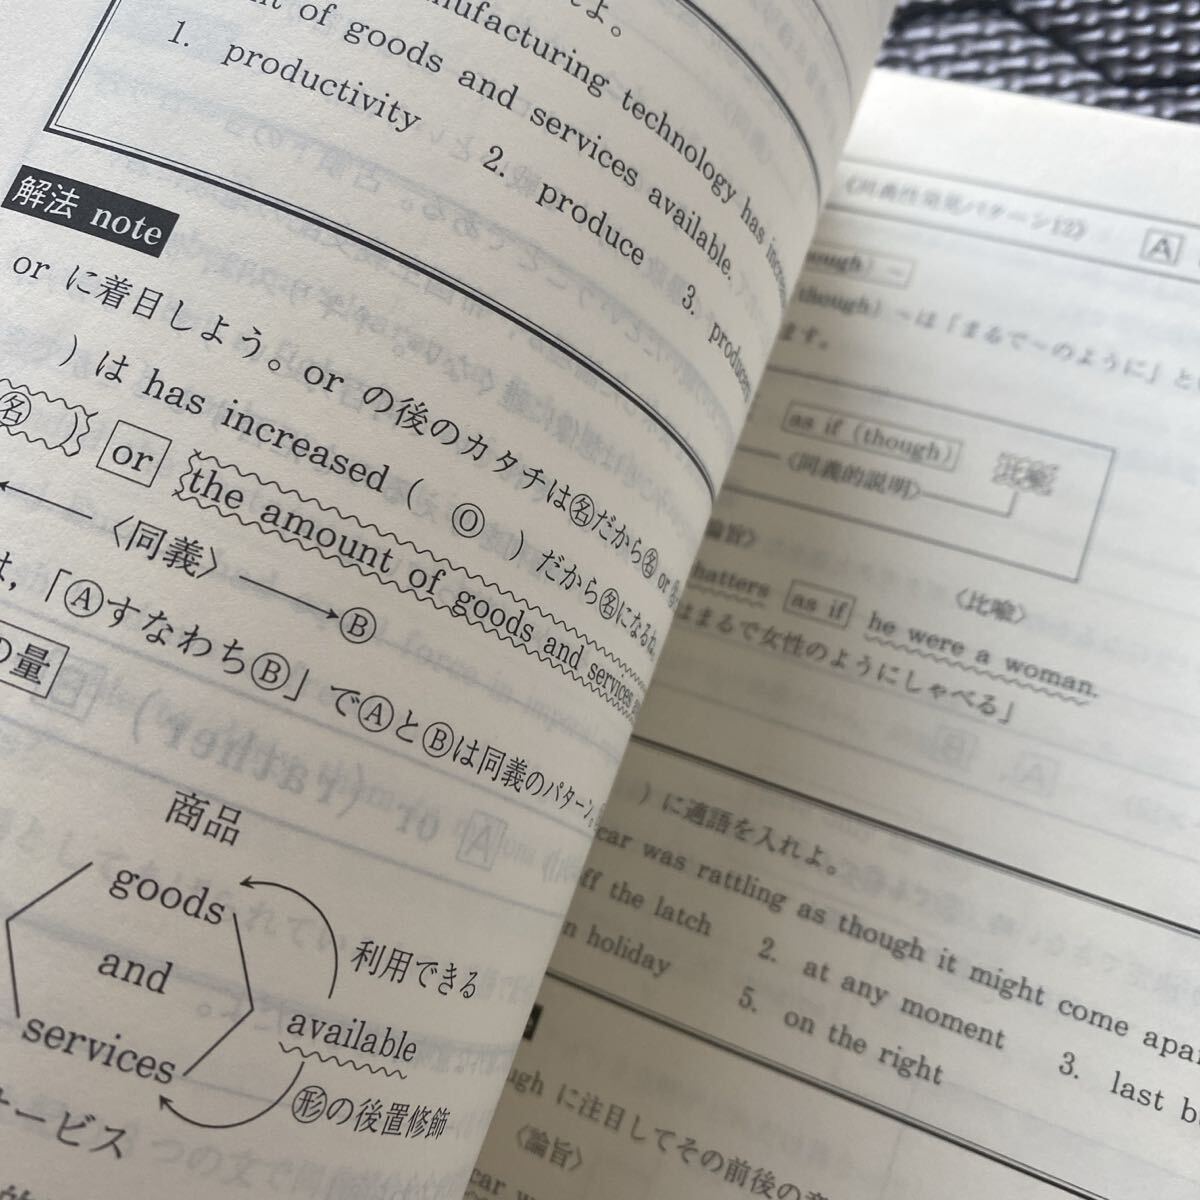 よ。
manufacturing technology has
of goods and services available.
1. productivity 2. produce 3.
解法 note
or に着目しよう。or の後のカタチは㊔だから㊔ or
)は has increased ( Ⓞ )だから㊔になるね。
㊔ ) or the amount of goods and services
〈同義〉 Ⓑ
は，「Ⓐすなわち Ⓑ」で Ⓐと Ⓑは同義のパターン。
の量
商品
goods
and
services
利用できる
available
形の後置修飾
サービス
《同義性発見パターン12》
A
though) ~
though) ~は「まるで~のように」と
ます。
as if (though)
〈同義的説明〉
比喩
論旨〉
〈比喩〉
hatters as if he were a woman.
はまるで女性のようにしゃべる」
)に適語を入れよ。
car was rattling as though it might come
ff the latch 2. at any moment 3. last
n holiday 5. on the right
ugh に注目してその前後の
〈論旨〉
car